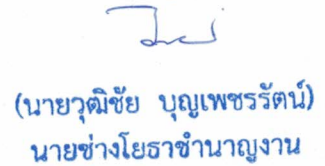 (นายวุฒิชัย  บุญเพชรรัตน์)
นายช่างโยธาชำนาญงาน